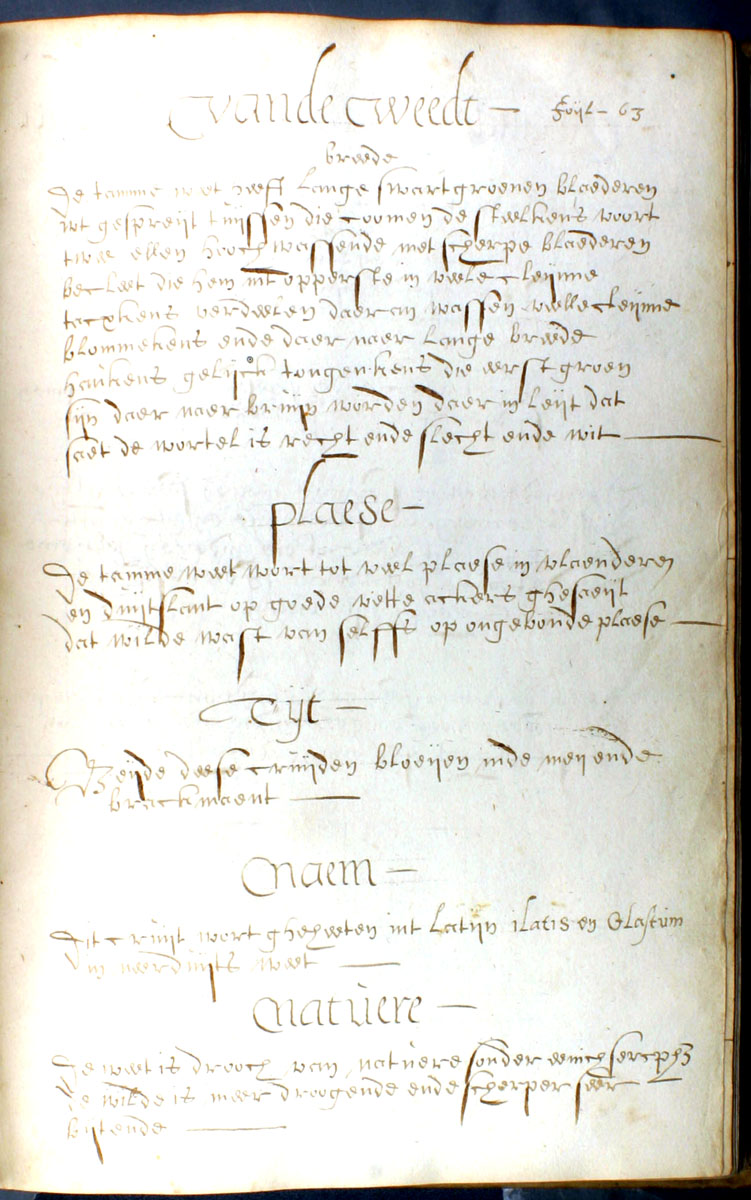 vande weedt — foijl – 63
breede
De tamme weet heeft lange swartgroenen blaederen
wt gespreijt tuijssen die coomen de steelkens voort
twee ellen hooch wassende met scherpe blaederen
becleet die hem int opperste in veele cleijnne
tacxkens verdeelen daer an wassen veelle cleijnne
blommekens ende daer naer lange breede
haukens gelijck tongenkens die eerst groen
sijn daer naer bruijn worden daer in leijt dat
saet de wortel is recht ende slecht ende wit —
plaese –
De tamme weet wort tot veel plaese in vlaenderen
en duijtslant op goede vette ackers ghesaeijt
dat wilde wast van selffs op ongeboude plaese —
Tijt —
Beijde deese cruijden bloeijen inde meij ende
brackmaent —
naem —
Dit cruijt wort gheheeten int latijn ilatis en Glastum
in neerduijts weet —
natuere —
De weet is drooch van natuere sonder eenich
de wilde is meer droogende ende scherper seer
bijtende —